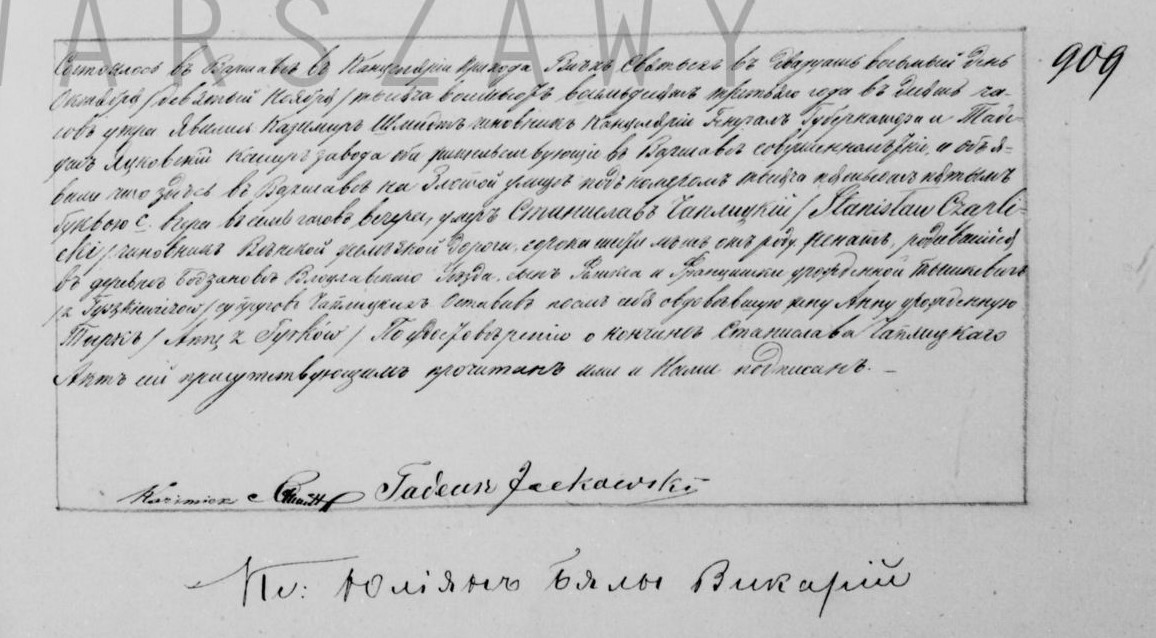 WARSZAWY
909
Состоялось въ Варшавѣ въ Канцеляріи прихода Всѣхъ Святыхъ въ двадцать восьмый день
Октября / девятый Ноября / тысяча восемьсотъ восемьдесятъ третьяго года въ девять ча-
совъ утра. Явились Казимиръ Шмидтъ чиновникъ Канцеляріи Генералъ Губернатора и Таде-
ушъ Яцковскій кассиръ завода оба жительствующіе въ Варшавѣ совершеннолѣтніе, и объя-
вили что здѣсь въ Варшавѣ на Злотой улицѣ подъ номеромъ тысяча пятьсотъ пятымъ
буквою С. вчера въ часовъ вечера, умеръ Станиславъ Чаплицкій / Stanisław Czapli-
cki / чиновникъ Вѣнской желѣзной дороги, сорока лѣтъ отъ роду, женатъ, родившійся
въ деревнѣ Бодзановѣ Влоцлавскаго Уѣзда, сынъ Феликса и Францишки урожденной
/ z / супруговъ Чаплицкихъ. Оставивъ послѣ себя овдовѣвшую жену Анну урожденную
Туркъ / Annę z Turków / По удостовѣреніи о кончинѣ Станислава Чаплицкаго
Актъ сей присутствующимъ прочитанъ ими и Нами подписанъ. –
Kazimierz Szmidt Tadeusz Jackowski
Кс: Юліянъ Бялы Викарій